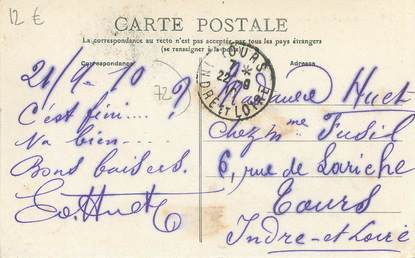 12 €
CARTE POSTALE
La correspondance au recto n'est pas acceptée par tous les pays étrangers
(se renseigner à la poste)
Correspondance
Adresse
TOURS
7*
22-9
INDRE ET LOIRE
72
21/9-10
C'est fini.... ?
Va bien----
Bons baisers.
Ed. Huet
Huet
Chez Mme Fusil
6, rue de Lariche
Tours
Indre-et-Loire